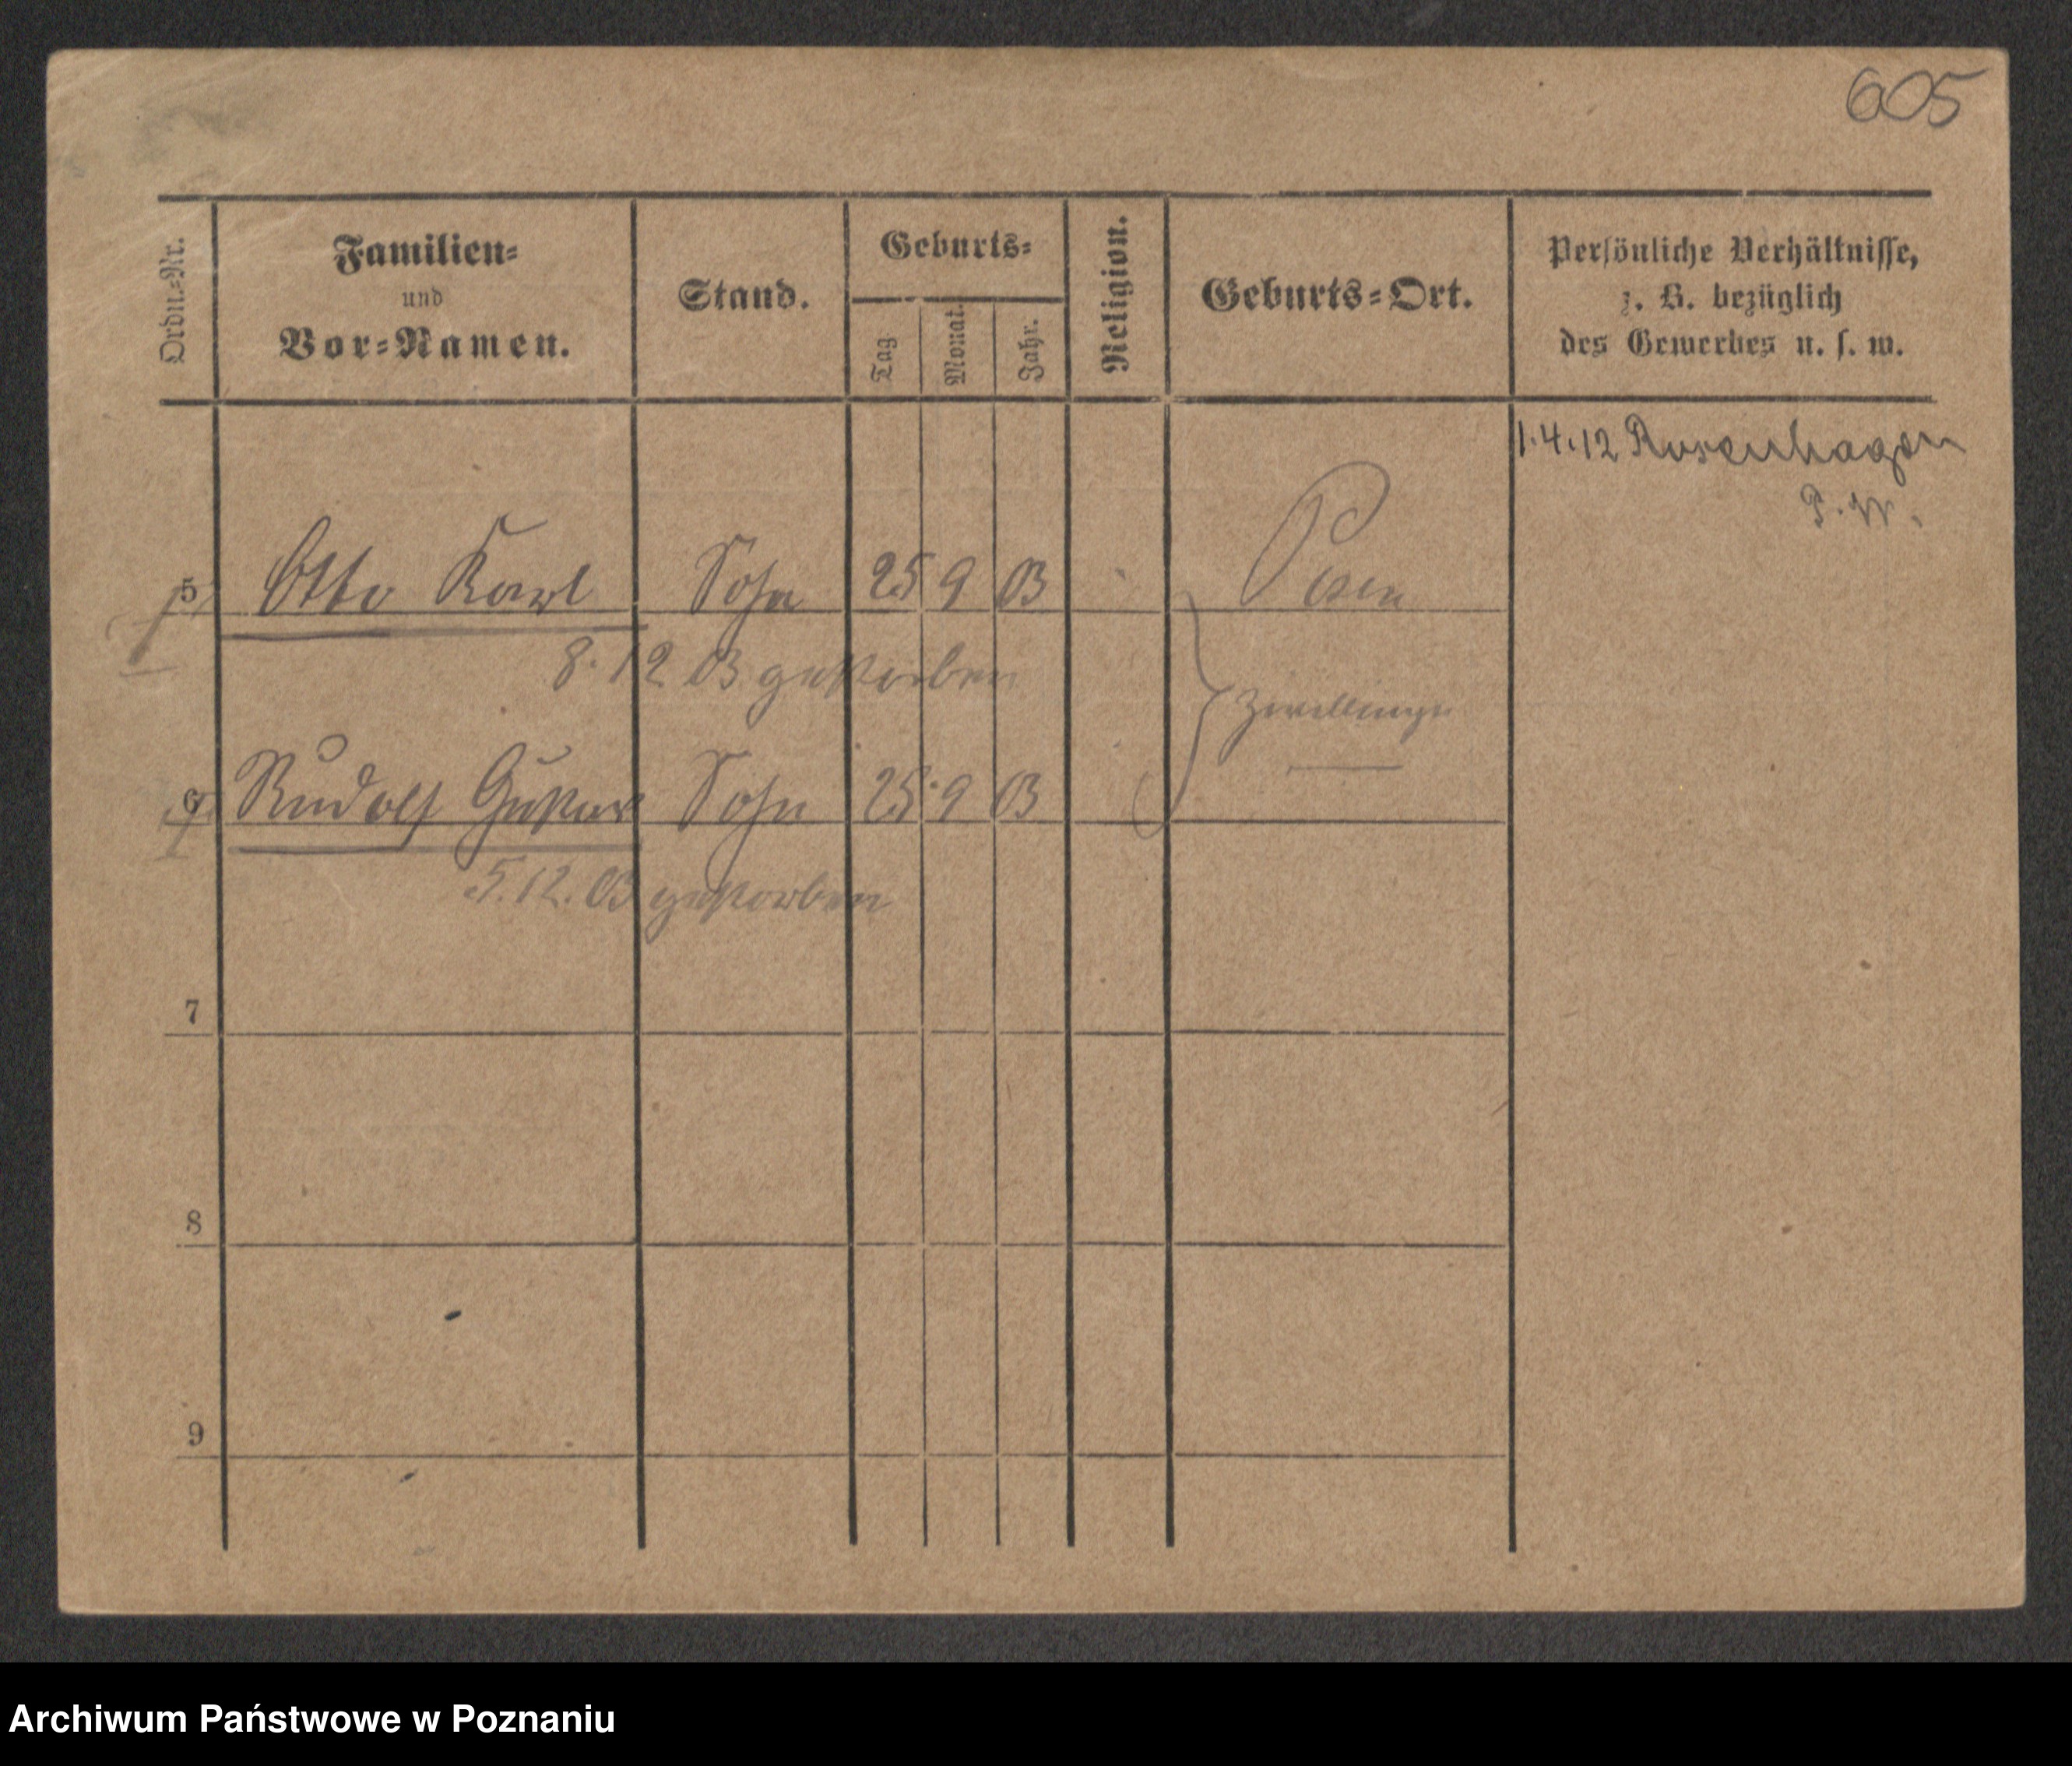 605
Ordn.-Nr.
Familien-
und
Vor-Namen.
Stand.
Geburts-
Tag.
Monat.
Jahr.
Religion.
Geburts-Ort.
Persönliche Verhältnisse,
z. B. bezüglich
des Gewerbes u. s. w.
1.4.12 Rosenhagen
P. W.
5 Otto Karl Sohn 25 9 03 Posen
8.12 03 gestorben
Zwillinge
6 Rudolf Gustav Sohn 25 9 03
5.12.03 gestorben
7
8
9
Archiwum Państwowe w Poznaniu